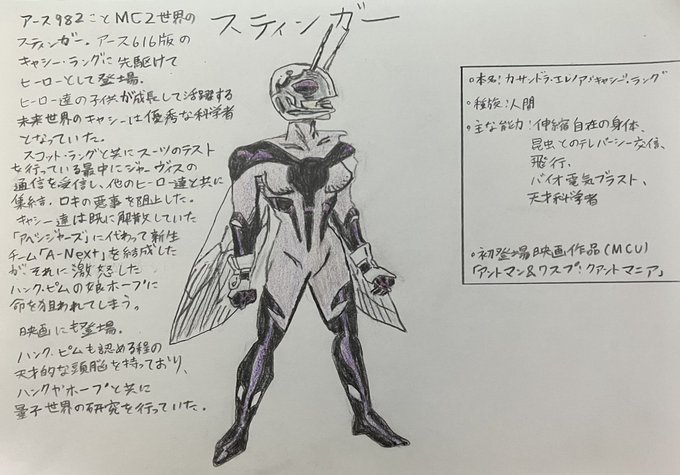 スティンガー
アース982ことMC2世界の
スティンガー。アース616版の
キャシー・ラングに先駆けて
ヒーローとして登場。
ヒーロー達の子供が成長して活躍する
未来世界のキャシーは優秀な科学者
となっていた。
スコット・ラングと共にスーツのテスト
を行っている最中にジャーヴィスの
通信を受信し、他のヒーロー達と共に
集結、ロキの悪事を阻止した。
キャシー達は既に解散していた
「アベンジャーズ」に代わって新生
チーム「A-Next」を結成した
がそれに激怒した
ハンク・ピムの娘ホープに
命を狙われてしまう。
映画にも登場。
ハンク・ピムも認める程の
天才的な頭脳を持っており、
ハンクやホープと共に
量子世界の研究を行っていた。
○本名:カサンドラ・エレノア・"キャシー"・ラング
○種族:人間
○主な能力:伸縮自在の身体、
昆虫とのテレパシー交信、
飛行、
バイオ電気ブラスト、
天才科学者
○初登場映画作品(MCU)
「アントマン&ワスプ:クアントマニア」